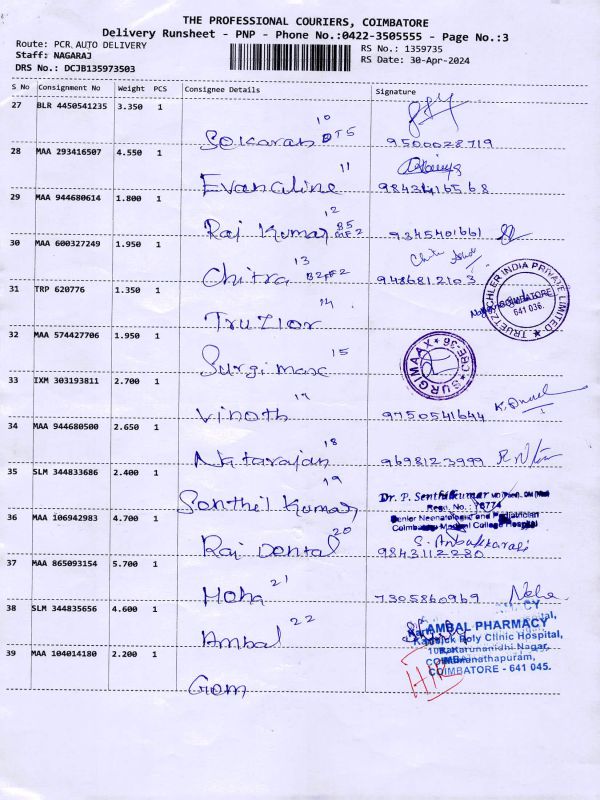 THE PROFESSIONAL COURIERS, COIMBATORE
Delivery Runsheet - PNP - Phone No.:0422-3505555 - Page No.:3
Route: PCR AUTO DELIVERY
RS No.: 1359735
Staff: NAGARAJ
RS Date: 30-Apr-2024
DRS No.: DCJB135973503
S No Consignment No Weight PCS Consignee Details Signature
27 BLR 4450541235 3.350 1
10
9500028719
28 MAA 293416507 4.550 1
11
Evangline
29 MAA 944680614 1.800 1
12
Raj Kumar
9345401661
30 MAA 600327249 1.950 1
13
Chitra
9486812103
TRUETZSCHLER INDIA PRIVATE LIMITED
COIMBATORE
641 036.
31 TRP 620776 1.350 1
14
32 MAA 574427706 1.950 1
15
SURGIMAAX
CBE-36
33 IXM 303193811 2.700 1
17
Vinoth
9750541644
34 MAA 944680500 2.650 1
18
Natarajan
9698123999
35 SLM 344833686 2.400 1
19
Senthil Kumar
Dr. P. Senthilkumar
Senior Neonatologist and Pediatrician
Coimbatore Medical College Hospital
36 MAA 106942983 4.700 1
20
Rai Dental
9843112280
37 MAA 865093154 5.700 1
21
7305860969
38 SLM 344835656 4.600 1
22
Ambal
AMBAL PHARMACY
Poly Clinic Hospital,
Karunanidhi Nagar,
COIMBATORE - 641 045.
39 MAA 104014180 2.200 1
Gem